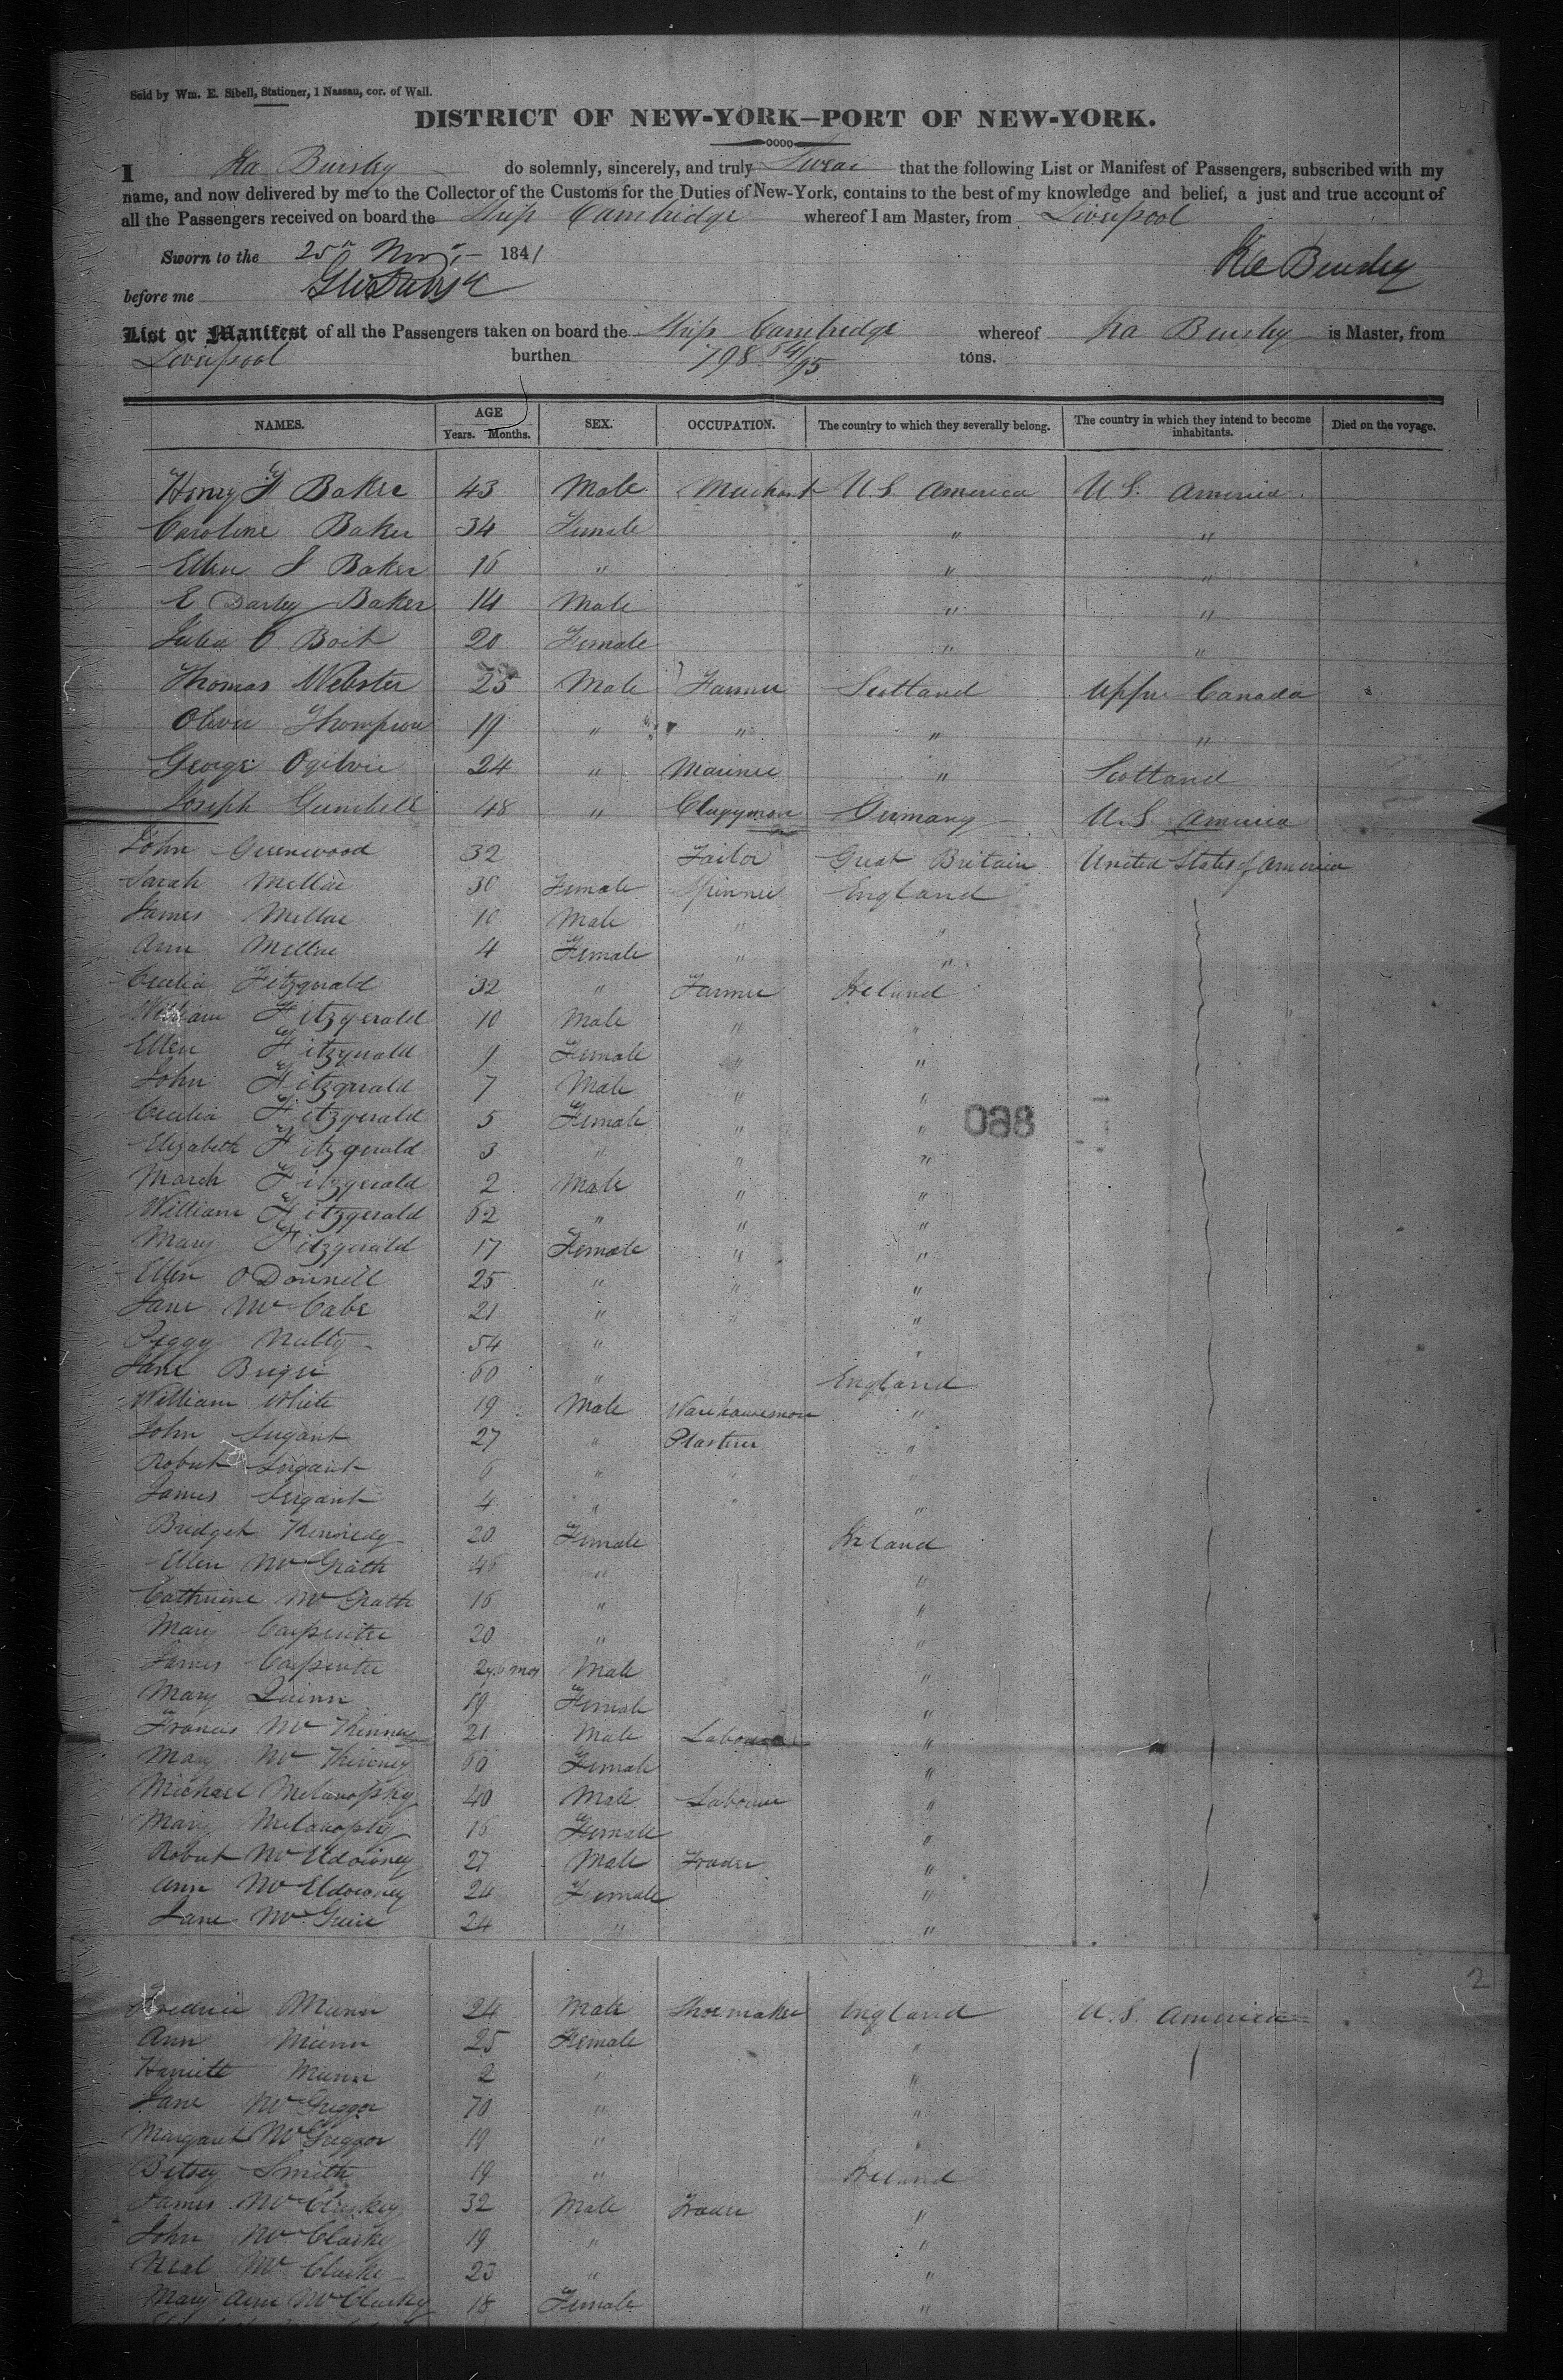 Sold by Wm. E. Sibell, Stationer, 1 Nassau, cor. of Wall.
DISTRICT OF NEW-YORK—PORT OF NEW-YORK.
I Ira Bursley do solemnly, sincerely, and truly Swear that the following List or Manifest of Passengers, subscribed with my
name, and now delivered by me to the Collector of the Customs for the Duties of New-York, contains to the best of my knowledge and belief, a just and true account of
all the Passengers received on board the Ship Cambridge whereof I am Master, from Liverpool
Sworn to the 25th Novr. 1841 Ira Bursley
before me
List or Manifest of all the Passengers taken on board the Ship Cambridge whereof Ira Bursley is Master, from
Liverpool burthen 798 64/95 tons.
NAMES. AGE Years. Months. SEX. OCCUPATION. The country to which they severally belong. The country in which they intend to become inhabitants. Died on the voyage.
Henry F Baker 43 Male Merchant U.S. America U.S. America
Caroline Baker 34 Female " "
Ellen J Baker 16 " " "
E Darley Baker 14 Male " "
Julia O Boit 20 Female " "
Thomas Webster 25 Male Farmer Scotland Upper Canada
Oliver Thompson 19 " " " "
George Ogilvie 24 " Mariner " Scotland
Joseph Gumbell 48 " Clergyman Germany U.S. America
John Greenwood 32 Tailor Great Britain United States of America
Sarah Mellar 30 Female Spinner England
James Mellar 10 Male " "
Ann Mellar 4 Female " "
Cecelia Fitzgerald 32 " Farmer Ireland
William Fitzgerald 10 Male " "
Ellen Fitzgerald 9 Female " "
John Fitzgerald 7 Male " "
Cecelia Fitzgerald 5 Female " "
Elizabeth Fitzgerald 3 " " "
March Fitzgerald 2 Male " "
William Fitzgerald 62 " " "
Mary Fitzgerald 17 Female " "
Ellen O Donnell 25 " " "
Jane Mc Cabe 21 " " "
Peggy Nulty 54 " "
Jane 60 " England
William White 19 Male Warehouseman "
John Sergant 27 " Plasterer "
Robert Sergant 6 " " "
James Sergant 4 " " "
Bridget Kennedy 20 Female Ireland
Ellen Mc Grath 46 " "
Catherine Mc Grath 16 " "
Mary Carpenter 20 " "
James Carpenter 2 y. 6 mos Male "
Mary Quinn 19 Female "
Francis Mc Kinney 21 Male Labourer "
Mary Mc Kinney 60 Female "
Michael Melanophy 40 Male Labourer "
Mary Melanophy 16 Female "
Robert Mc Eldowney 27 Male Trader "
Ann Mc Eldowney 24 Female "
Jane Mc Guire 24 " "
2
Fredrick Munn 24 Male Shoemaker England U.S. America
Ann Munn 25 Female "
Harriett Munn 2 " "
Jane Mc Greggor 70 " "
Margaret Mc Greggor 19 " "
Betsey Smith 19 " Ireland
James Mc Clarky 32 Male Trader "
John Mc Clarky 19 " "
Neal Mc Clarke 23 " "
Mary Ann Mc Clarky 18 Female "